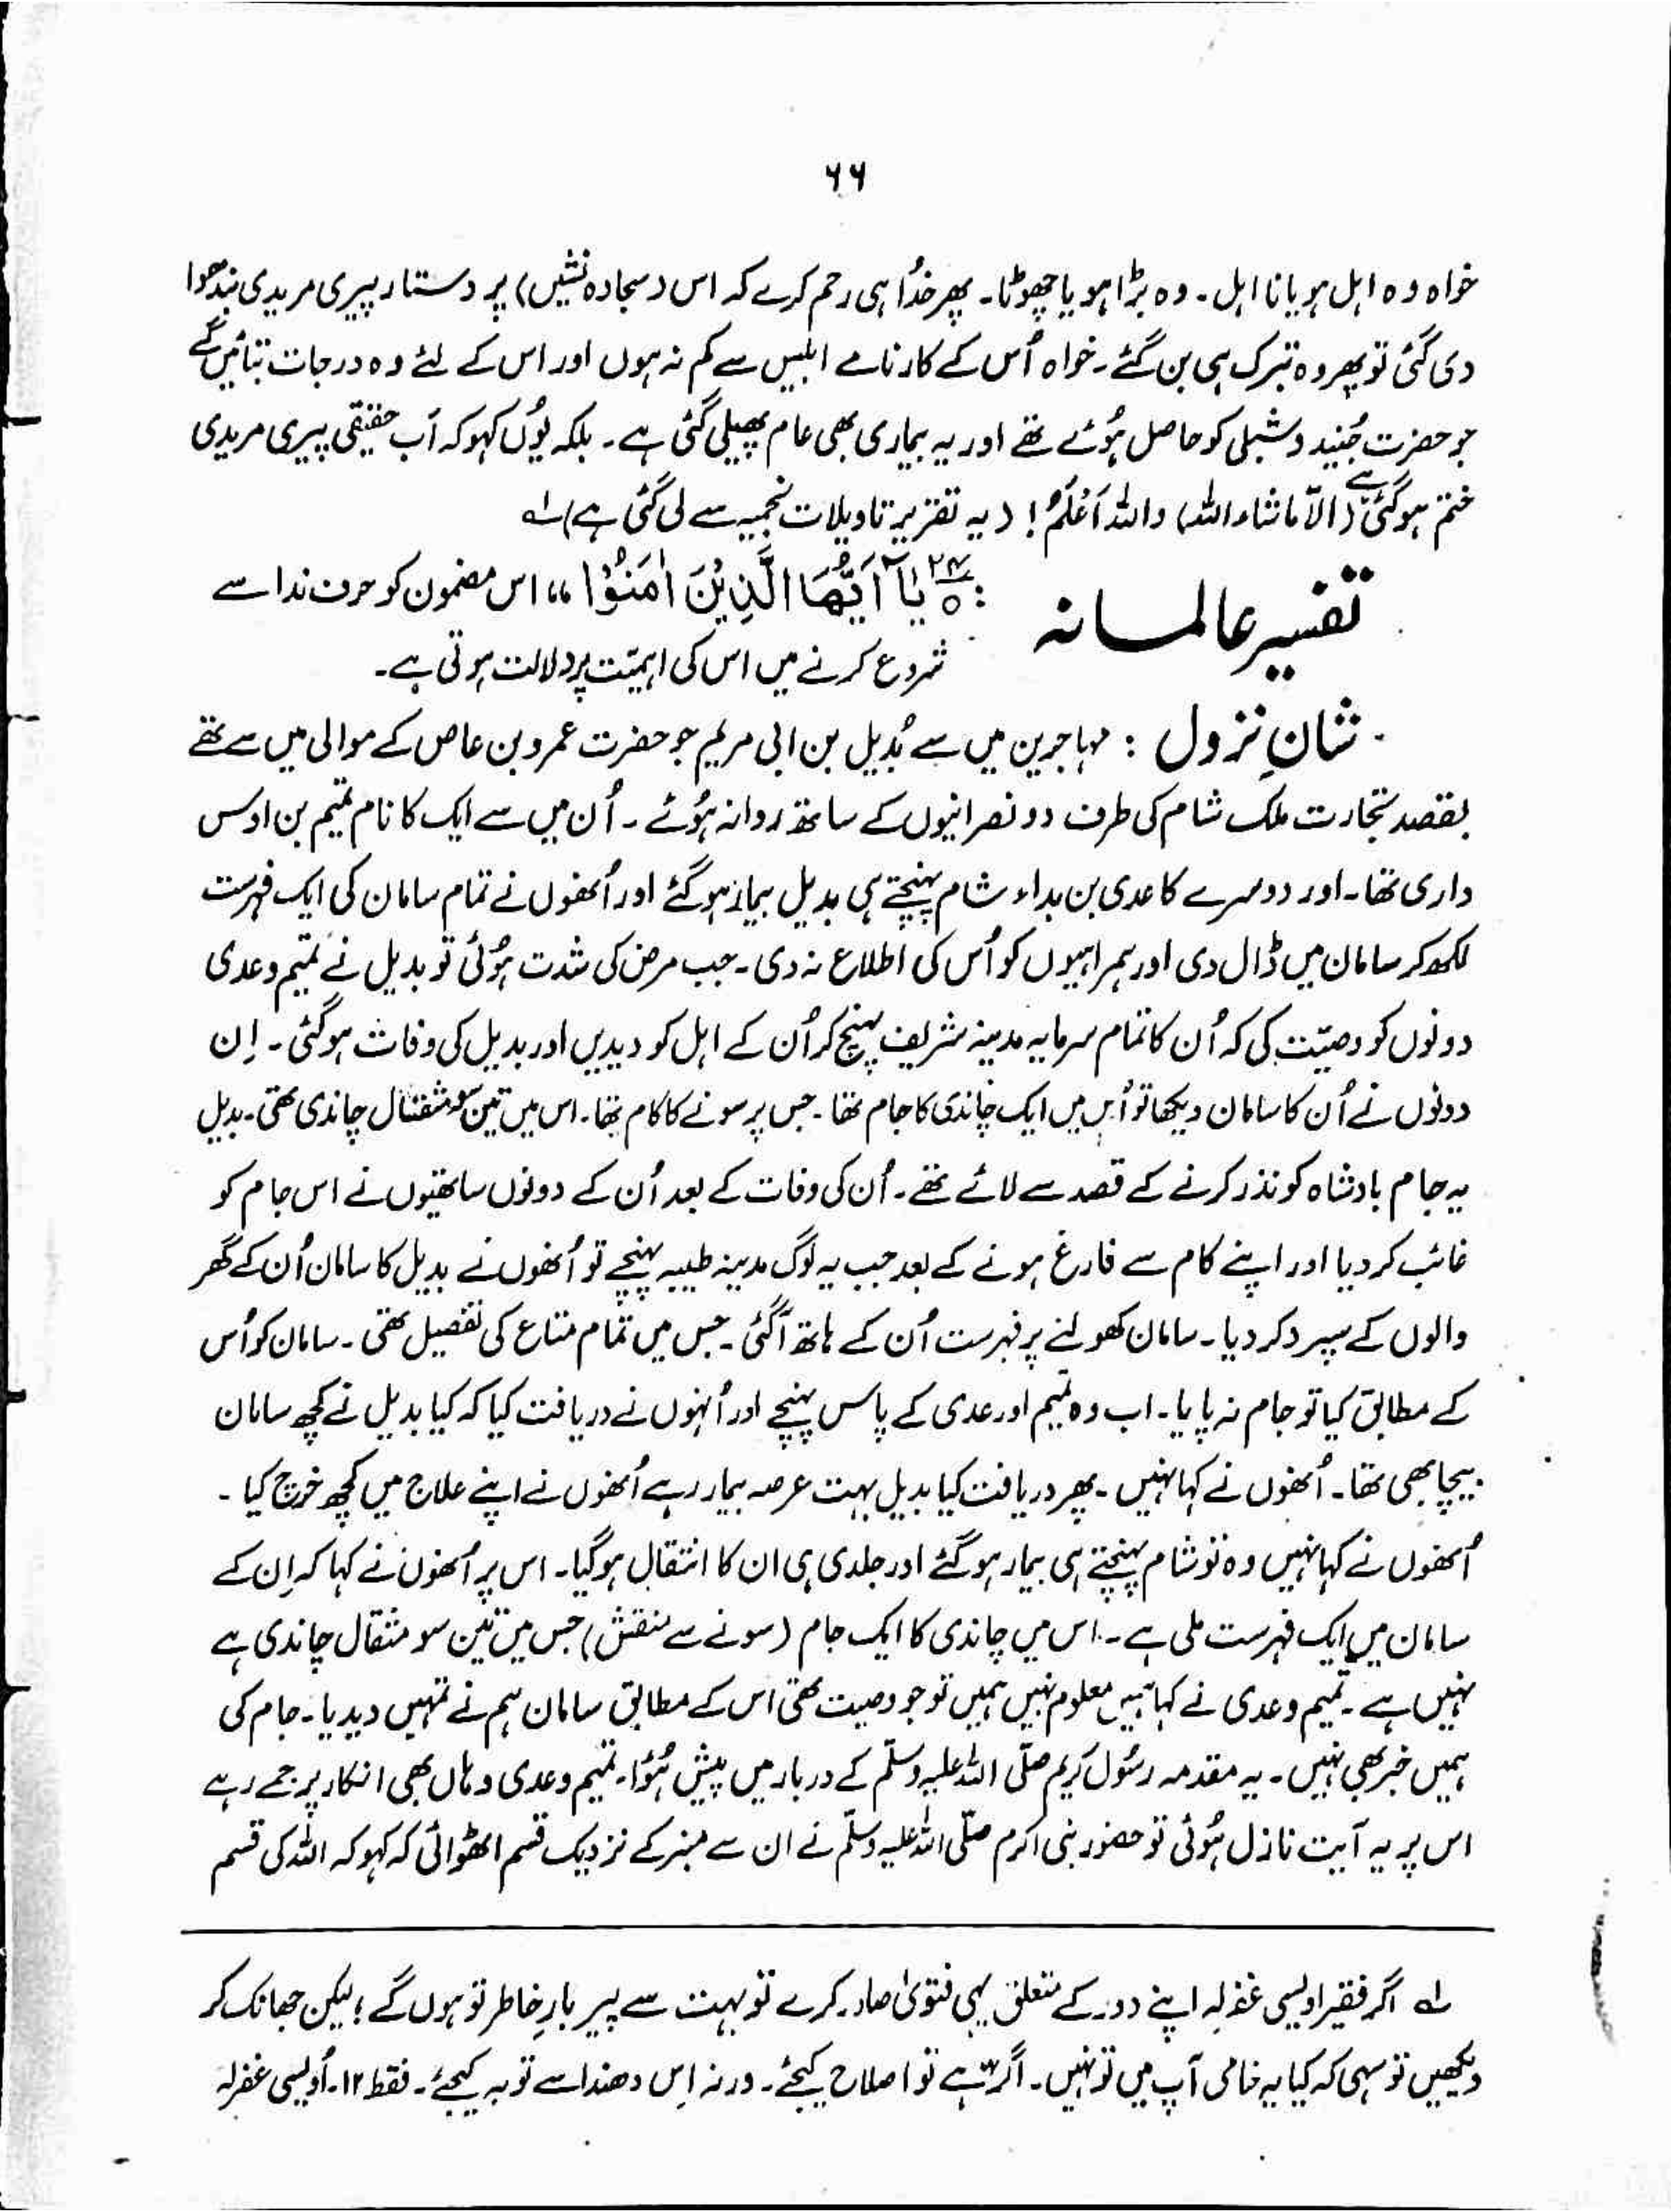 ۶۶
خواہ وہ اہل ہو یا نا اہل۔ وہ بڑا ہو یا چھوٹا۔ پھر خدُا ہی رحم کرے کہ اس (سجادہ نشیں) پر دستار پیری مریدی بندھوا
دی گئی تو پھر وہ تبرک ہی بن گئے۔ خواہ اُس کے کارنامے ابلیس سے کم نہ ہوں اور اس کے لئے وہ درجات بتائیں گے
جو حضرت جُنید و شبلی کو حاصل ہُوئے تھے اور یہ بیماری بھی عام پھیلی گئی ہے۔ بلکہ یُوں کہو کہ اَب حقیقی پیری مریدی
ختم ہوگئی ہے (الاّ ماشاء اللہ) واللہ اَعْلَمُ! (یہ تقریر تاویلات نجمیہ سے لی گئی ہے) لہ
تفسیر عالمانہ : یٰآ اَیُّهَا الَّذِیْنَ اٰمَنُوْا ،، اس مضمون کو حرف ندا سے
شروع کرنے میں اس کی اہمیّت پر دلالت ہوتی ہے۔
شانِ نزول : مہاجرین میں سے بُدیل بن ابی مریم جو حضرت عمرو بن عاص کے موالی میں سے تھے
بقصد تجارت ملک شام کی طرف دو نصرانیوں کے ساتھ روانہ ہُوئے۔ اُن میں سے ایک کا نام تمیم بن اوس
داری تھا۔ اور دوسرے کا عدی بن بداء شام پہنچتے ہی بدیل بیمار ہو گئے اور اُنھوں نے تمام سامان کی ایک فہرست
لکھ کر سامان میں ڈال دی اور ہمراہیوں کو اُس کی اطلاع نہ دی۔ جب مرض کی شدت ہُوئی تو بدیل نے تمیم و عدی
دونوں کو وصیّت کی کہ اُن کا تمام سرمایہ مدینہ شریف پہنچ کر اُن کے اہل کو دیدیں اور بدیل کی وفات ہوگئی۔ اِن
دونوں نے اُن کا سامان دیکھا تو اُس میں ایک چاندی کا جام تھا۔ جس پر سونے کا کام تھا۔ اس میں تین سو مثقال چاندی تھی۔ بدیل
یہ جام بادشاہ کو نذر کرنے کے قصد سے لائے تھے۔ اُن کی وفات کے بعد اُن کے دونوں ساتھیوں نے اس جام کو
غائب کر دیا اور اپنے کام سے فارغ ہونے کے بعد جب یہ لوگ مدینہ طیبہ پہنچے تو اُنھوں نے بدیل کا سامان اُن کے گھر
والوں کے سپرد کر دیا۔ سامان کھولنے پر فہرست اُن کے ہاتھ آگئی۔ جس میں تمام متاع کی تفصیل تھی۔ سامان کو اُس
کے مطابق کیا تو جام نہ پایا۔ اب وہ تمیم اور عدی کے پاس پہنچے اور اُنہوں نے دریافت کیا کہ کیا بدیل نے کچھ سامان
بیچا بھی تھا۔ اُنھوں نے کہا نہیں۔ پھر دریافت کیا بدیل بہت عرصہ بیمار رہے اُنھوں نے اپنے علاج میں کچھ خرچ کیا۔
اُنھوں نے کہا نہیں وہ تو شام پہنچتے ہی بیمار ہو گئے اور جلدی ہی ان کا انتقال ہوگیا۔ اس پر اُنھوں نے کہا کہ اِن کے
سامان میں ایک فہرست ملی ہے۔ اس میں چاندی کا ایک جام (سونے سے منقش) جس میں تین سو مثقال چاندی ہے
نہیں ہے۔ تمیم و عدی نے کہا ہمیں معلوم نہیں ہمیں تو جو وصیت تھی اس کے مطابق سامان ہم نے تمہیں دیدیا۔ جام کی
ہمیں خبر بھی نہیں۔ یہ مقدمہ رسُول کریم صلّی اللہ علیہ وسلّم کے دربار میں پیش ہُوا۔ تمیم و عدی وہاں بھی انکار پر جمے رہے
اس پر یہ آیت نازل ہُوئی تو حضور نبی اکرم صلّی اللہ علیہ وسلّم نے ان سے منبر کے نزدیک قسم اٹھوائی کہ کہو کہ اللہ کی قسم
لہ اگر فقیر اویسی غفرلہ اپنے دور کے متعلق یہی فتویٰ صادر کرے تو بہت سے پیر بارِ خاطر تو ہوں گے ؛ لیکن جھانک کر
دیکھیں تو سہی کہ کیا یہ خامی آپ میں تو نہیں۔ اگر ہے تو اصلاح کیجئے۔ ورنہ اِس دھندا سے توبہ کیجئے۔ فقط ۱۲۔ اُویسی غفرلہ